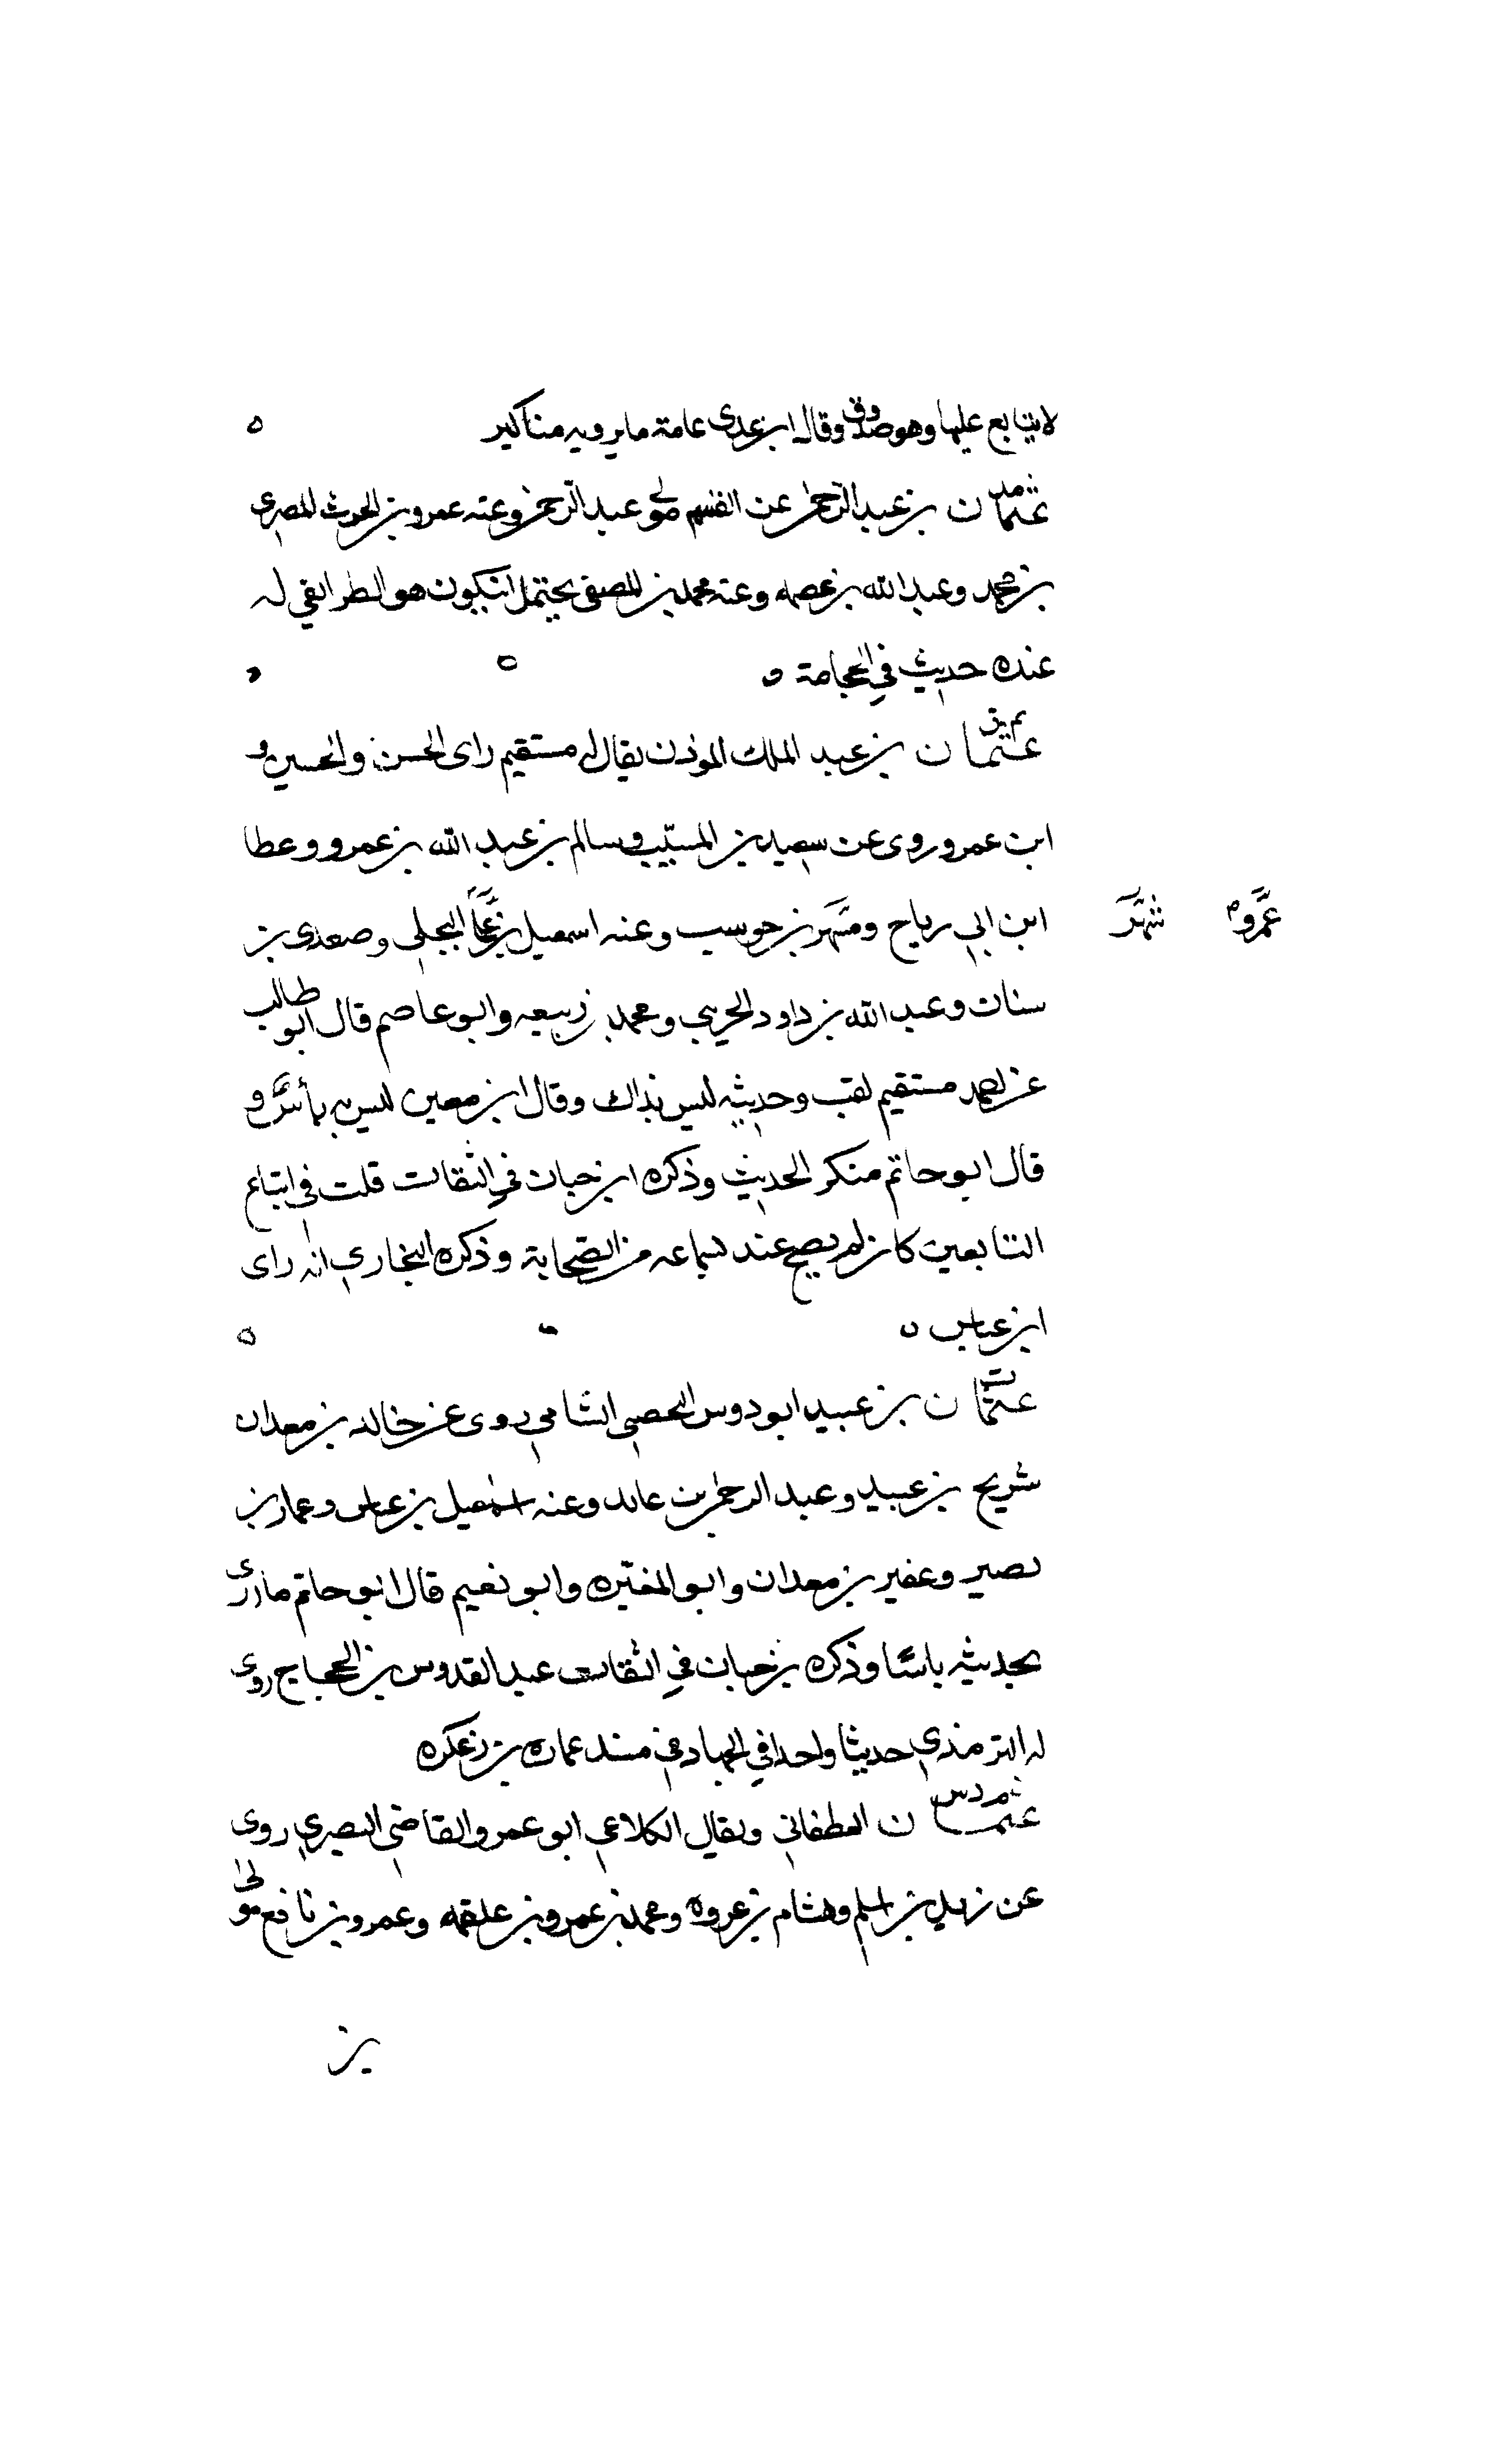 لا يتابع عليها وهو صدوق وقال ابن عدى عامة ما يرويه مناكير ه
عثمان بن عبد الرحمن عن القسم مولى عبد الرحمن وعنه عمرو بن الحرث المصرى
بن محمد وعبد الله بن عصمه وعنه محمد بن المصفى يحتمل انيكون هو الطرائفي له
عنده حديث في الحجامة ه
عثمان بن عبد الملك الموذن يقال له مستقيم راى الحسن والحسين و
ابن عمرو روى عن سعيد بن المسيب وسالم بن عبد الله بن عمرو وعطا
ابن ابي رياح وشهر بن حوسب وعنه اسمعيل بن البجلي وصعدى بن
عمرو شهر
سنان وعبد الله بن داود الحربي ومحمد بن ربيعه وابو عاصم قال ابو طالب
عن احمد مستقيم لقب وحديثه ليس بذاك وقال ابن معين ليس به بأس و
قال ابو حاتم منكر الحديث وذكره ابن حبان في الثقات قلت في اتباع
التابعين كان لم يصح عند سماعه من الصحابة وذكره البخاري انه راى
ابن عباس ه
عثمان بن عبيد ابو دوس الحصبى الشامي روى عن خالد بن معدان
شريح بن عبيد وعبد الرحمن بن عايد وعنه اسمعيل بن عياس وعمار بن
نصير وعفير بن معدان وابو المغيره وابو نعيم قال ابو حاتم ما ارى
بحديثه باسًا وذكره بن حبان في الثقات عبد القدوس بن الحجاج روى
له الترمذي حديثا واحدا في الجهاد في مسند عماره بن زعكره
ن الغطفاني ويقال الكلاعي ابو عمرو القاضي البصري روى
عن زيد بن اسلم وهشام بن عروه ومحمد بن عمرو بن علقمه وعمرو بن نافع مولى
بن